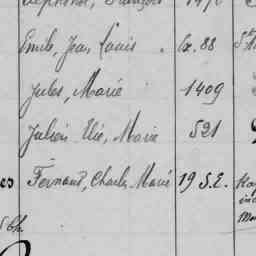 Emile, Jean Louis Ex. 88
Jules, Marie 1409
Julien Elie, Marie 521
Fernand, Charles Marie 19 S.E.